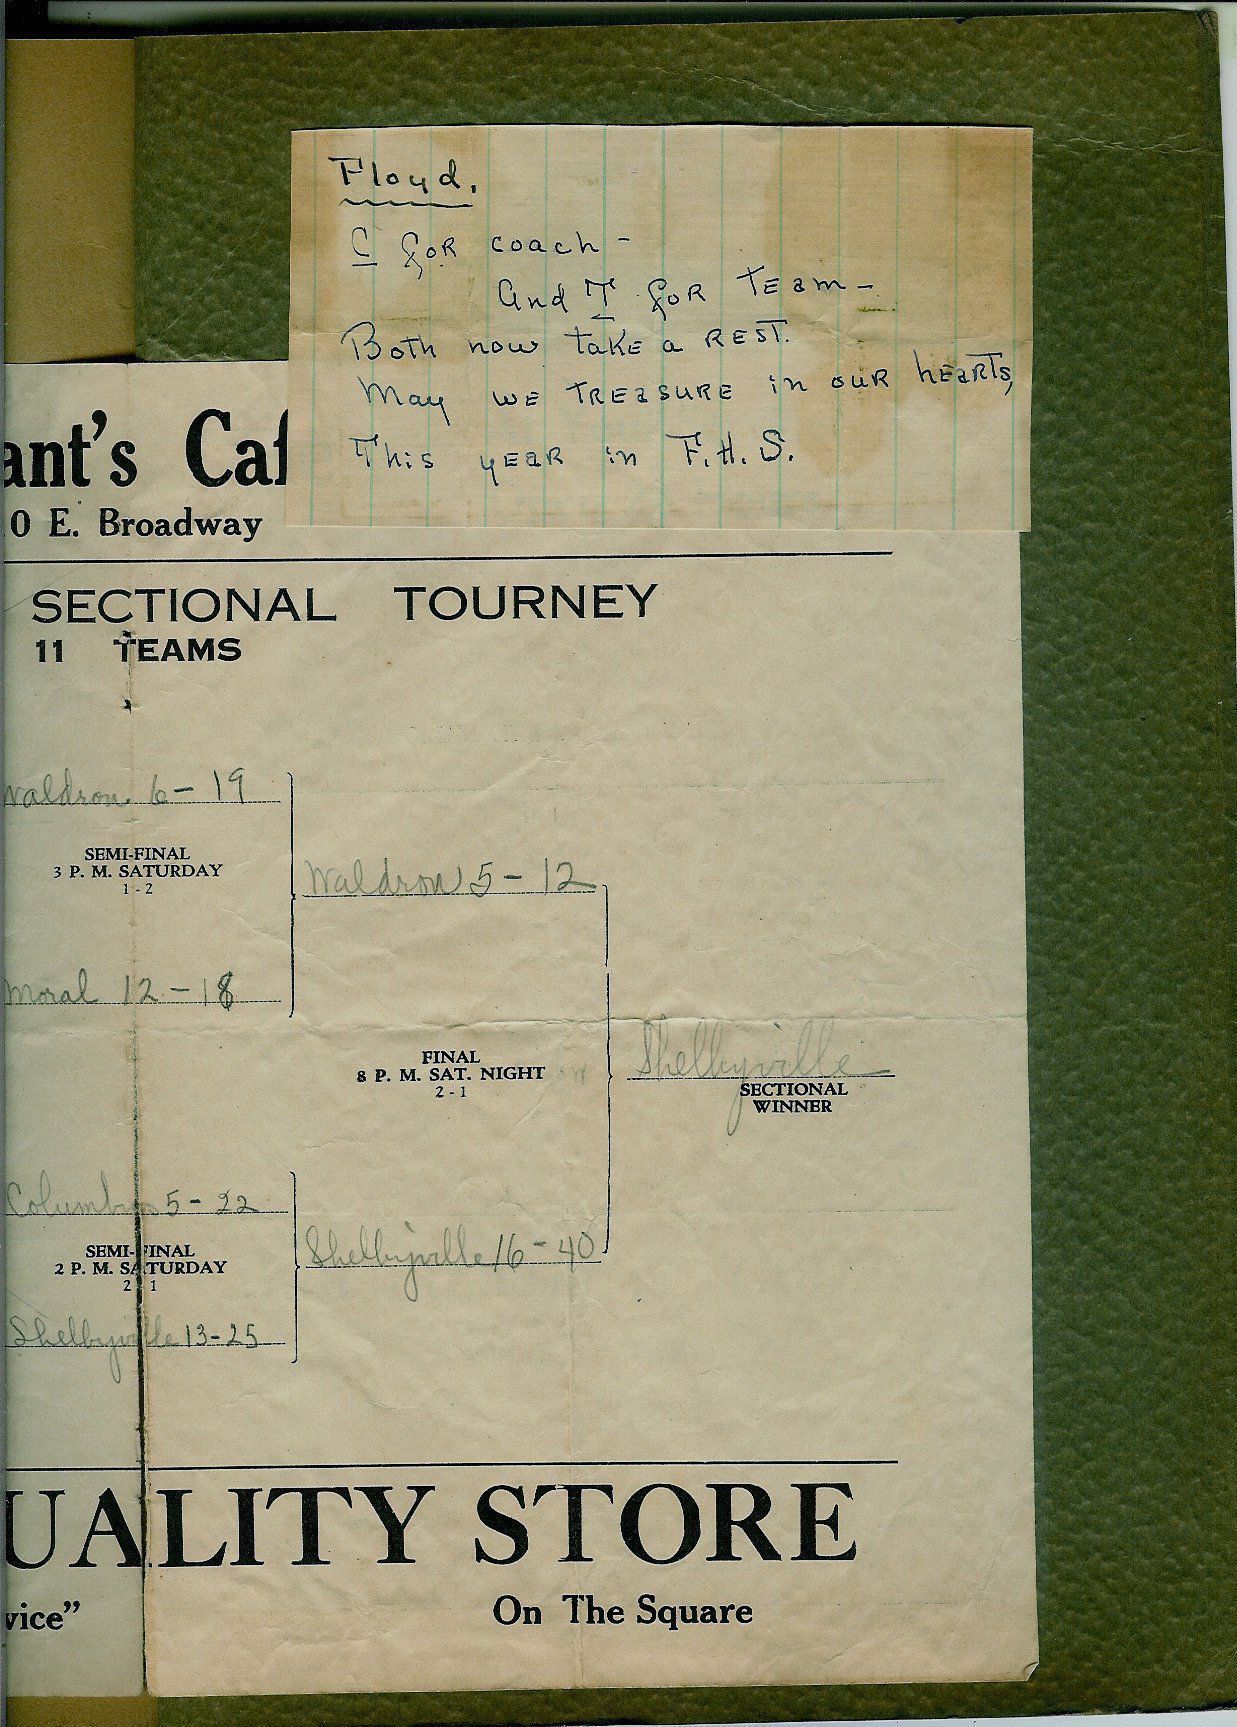 Floyd.
C for coach -
And T for Team -
Both now take a REST.
May we treasure in our hearts,
This year in F.H.S.
ant's Caf
0 E. Broadway
SECTIONAL TOURNEY
11 TEAMS
Waldron 6 - 19
SEMI-FINAL
3 P. M. SATURDAY
1 - 2
Waldron 5 - 12
Moral 12 - 18
Shelbyville
FINAL
8 P. M. SAT. NIGHT
2 - 1
SECTIONAL
WINNER
Columbus 5 - 22
SEMI-FINAL
2 P. M. SATURDAY
2 1
Shelbyville 16 - 40
Shelbyville 13 - 25
UALITY STORE
vice"
On The Square